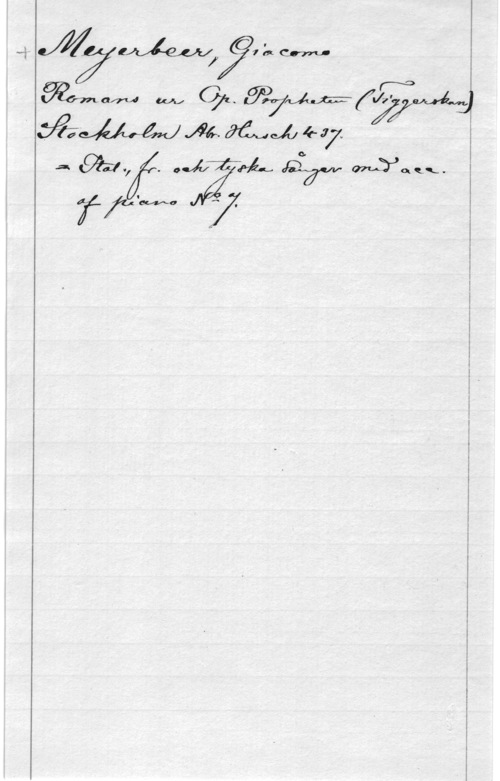 + Meyerbeer, Giacomo
Romans ur Op. Propheten (Tiggerskan)
Stockholm Abr. Hirsch 437.
= Ital., fr. och tyska sånger med acc.
af piano No 7.